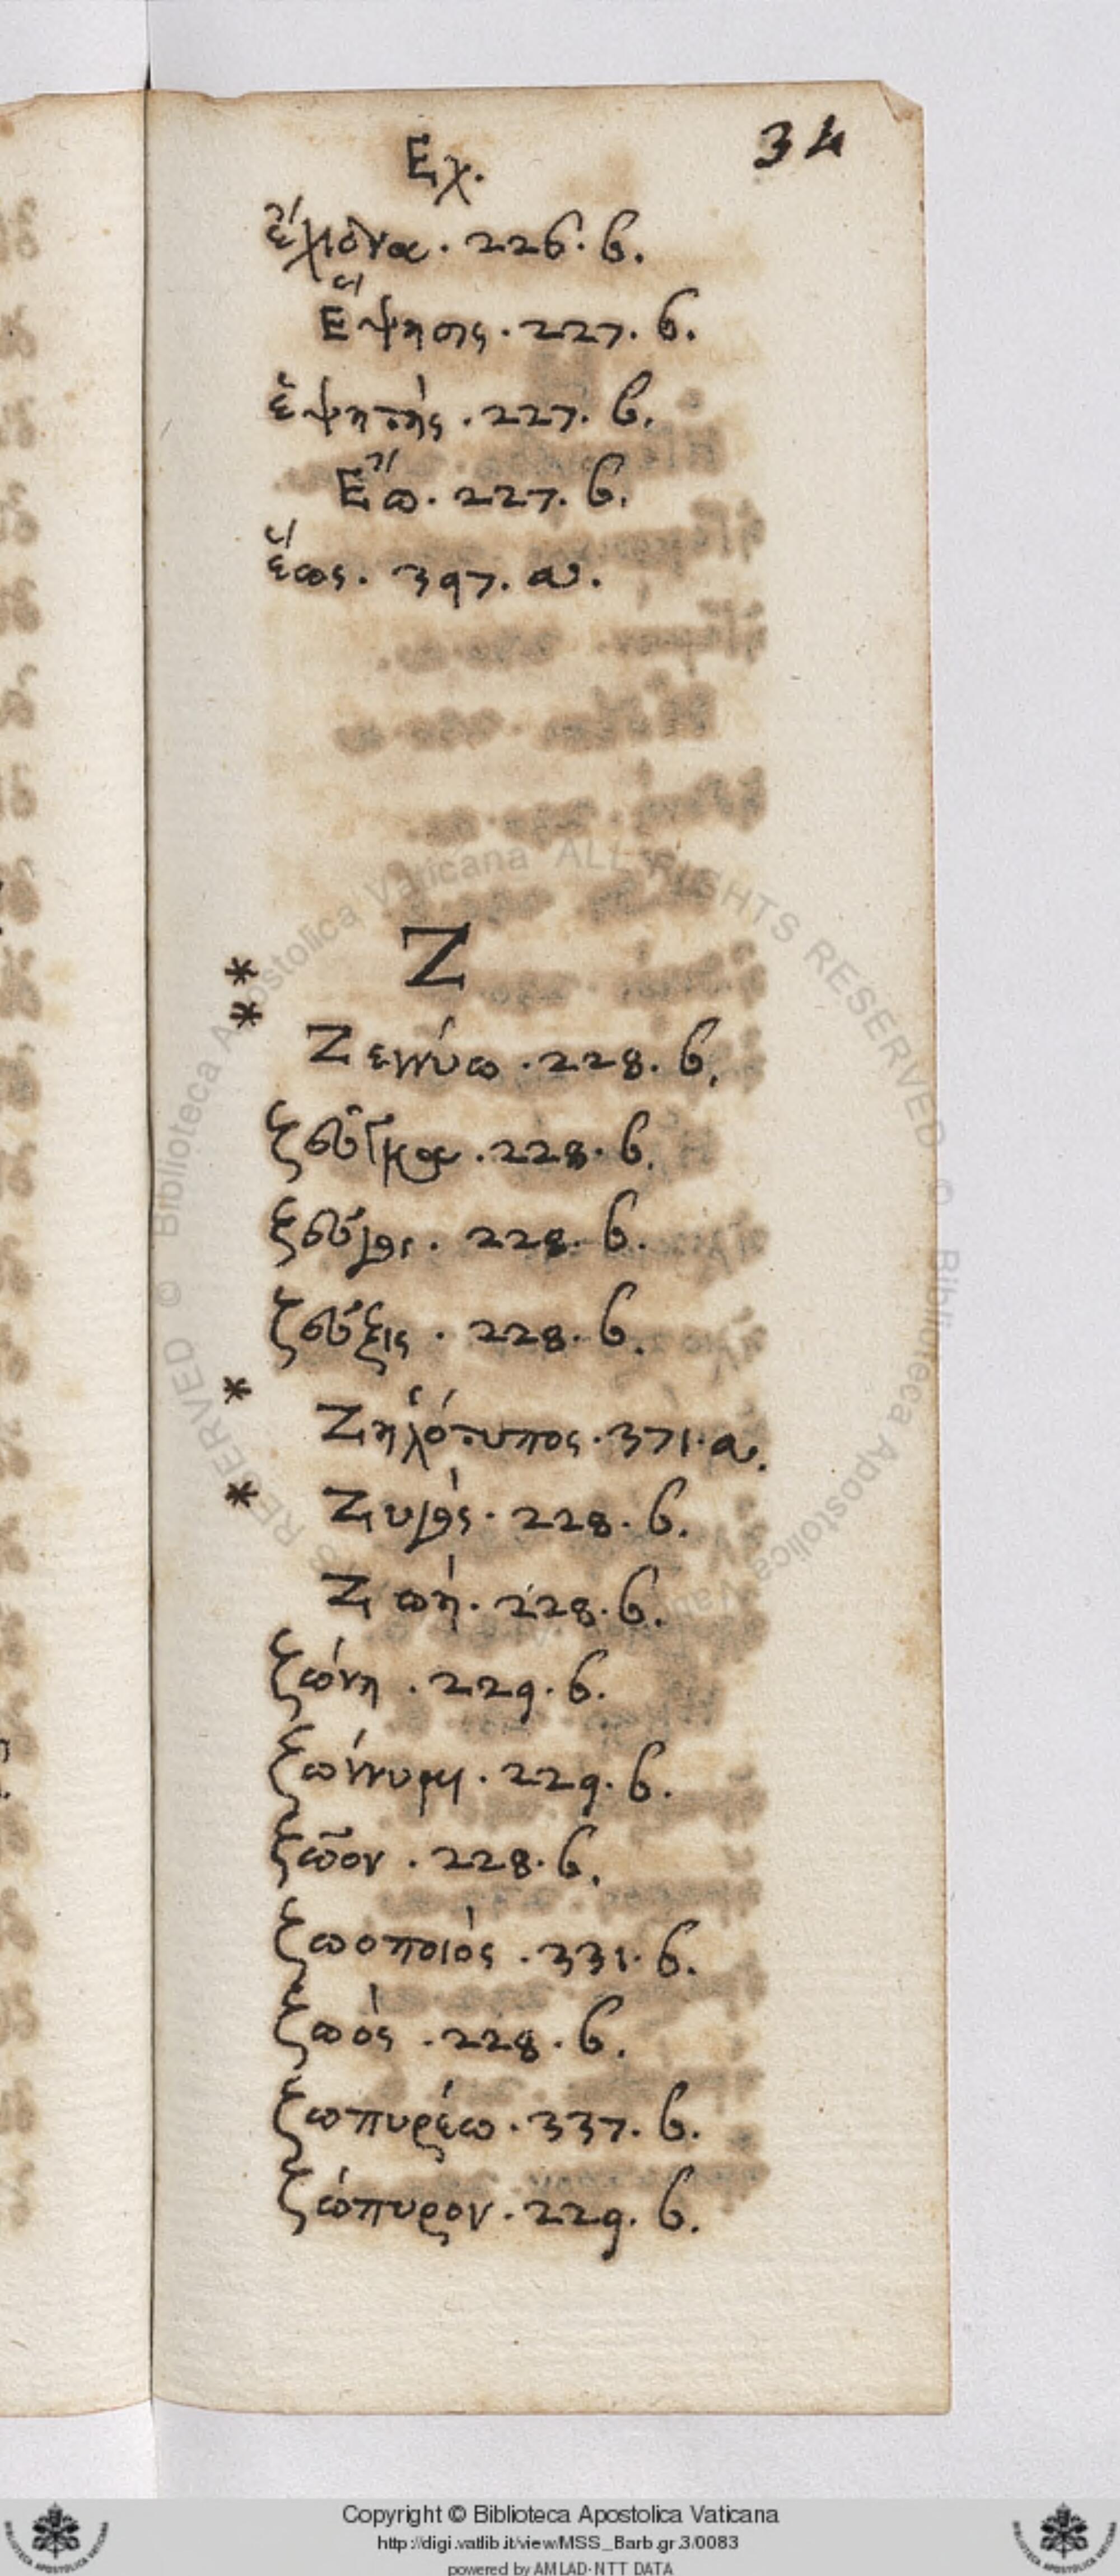 34
Εχ.
ἔχιδνα. 226. b.
Ἕψησις. 227. b.
ἑψητής. 227. b.
Ἔω. 227. b.
ἕως. 397. a.
Ζ
*
*
Ζεννύω. 228. b.
228. b.
228. b.
ζεῦξις. 228. b.
* Ζηλότυπος. 371. a.
* Ζυγός. 228. b.
Ζωή. 228. b.
ζώνη. 229. b.
ζώννυμι. 229. b.
ζῶον. 228. b.
ζωοποιός. 331. b.
ζωός. 228. b.
ζωπυρέω. 337. b.
ζώπυρον. 229. b.
Biblioteca Apostolica Vaticana ALL RIGHTS RESERVED ©
Copyright © Biblioteca Apostolica Vaticana
http://digi.vatlib.it/view/MSS_Barb.gr.3/0083
powered by AMLAD-NTT DATA